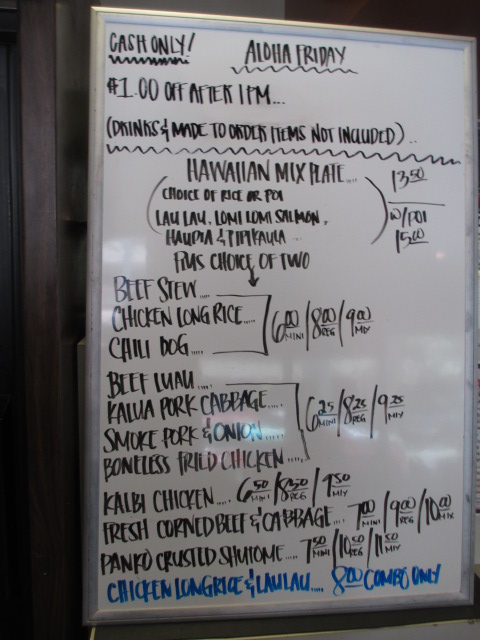 CASH ONLY! ALOHA FRIDAY
$1.00 OFF AFTER 1PM...
(DRINKS & MADE TO ORDER ITEMS NOT INCLUDED)..
HAWAIIAN MIX PLATE.... 13.50
CHOICE OF RICE OR POI W/POI 15.00
LAU LAU, LOMI LOMI SALMON,
HAUPIA & PIPIKAULA
PLUS CHOICE OF TWO
BEEF STEW....
CHICKEN LONG RICE.... 6.00 MINI/8.00 REG/9.00 MIX
CHILI DOG.....
BEEF LUAU....
KALUA PORK CABBAGE.... 6.25 MINI/8.25 REG/9.25 MIX
SMOKE PORK & ONION.....
BONELESS FRIED CHICKEN....
KALBI CHICKEN.... 6.50 MINI/8.50 REG/9.50 MIX
FRESH CORNED BEEF & CABBAGE... 7.00 MINI/9.00 REG/10.00 MIX
PANKO CRUSTED SHUTOME... 7.50 MINI/10.50 REG/11.50 MIX
CHICKEN LONGRICE & LAULAU..... 8.00 COMBO ONLY